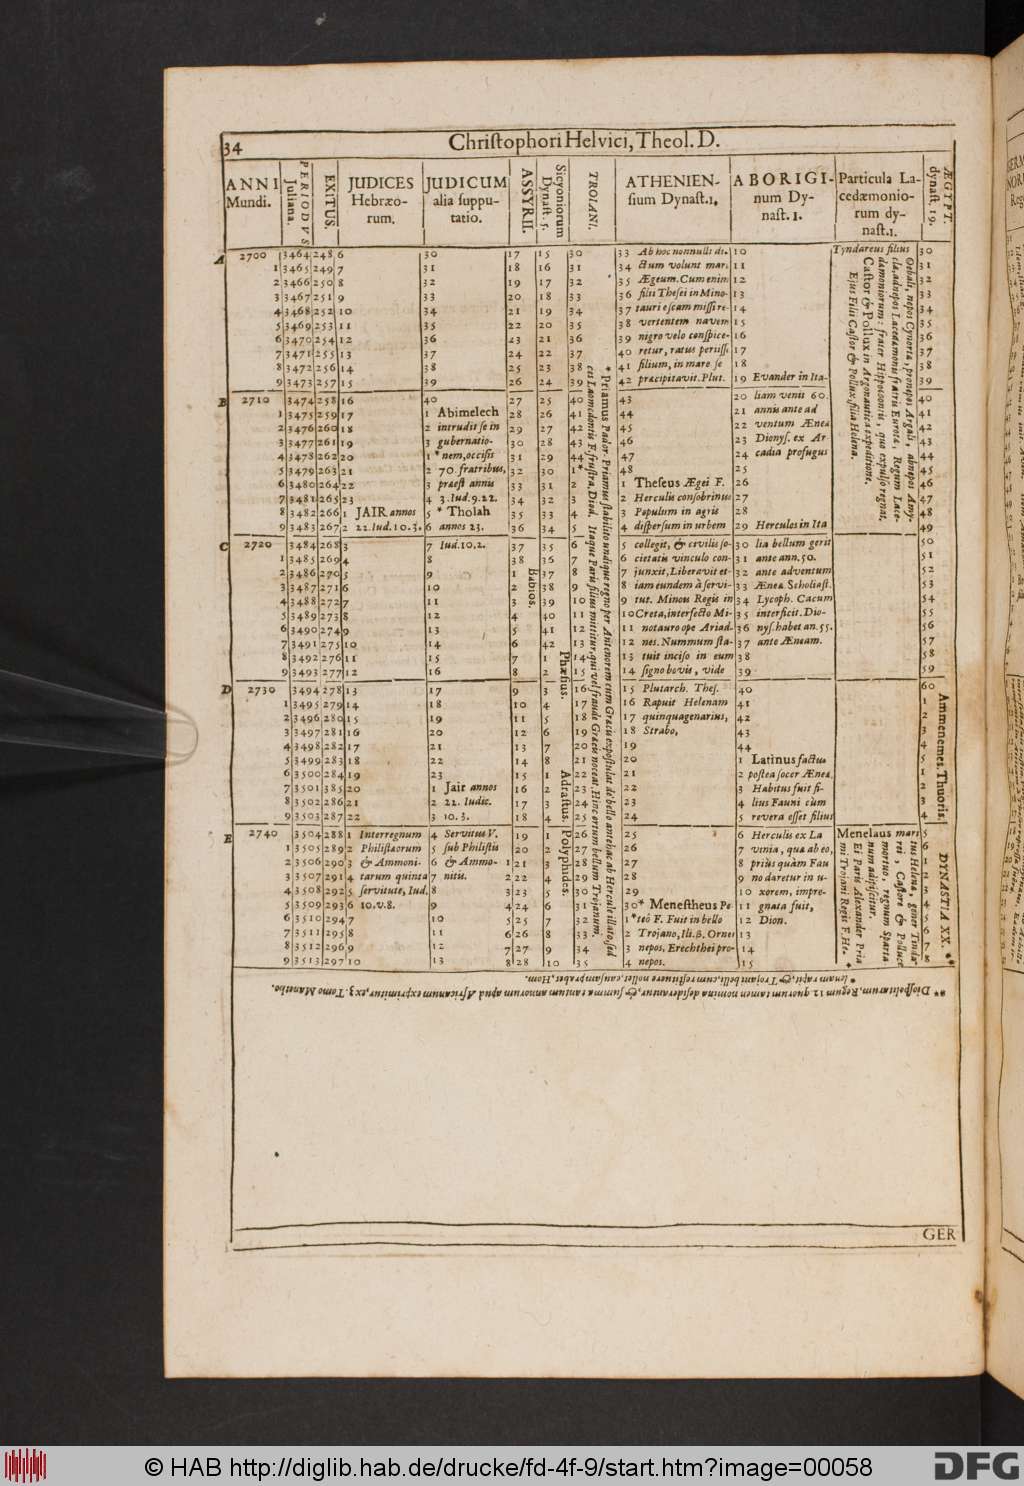 34
Christophori Helvici, Theol. D.
ANNI Mundi.
PERIODVS Juliana.
EXITUS.
JUDICES Hebræorum.
JUDICUM alia supputatio.
ASSYRII.
Sicyoniorum Dynast. 5.
TROIANI.
ATHENIENsium Dynast. 1.
ABORIGInum Dynast. 1.
Particula Lacedæmoniorum dynast. 1.
ÆGYPT. dynast. 19.
A 2700 3464 248 6 30 17 15 30 33 Ab hoc nonnulli di- 10 Tyndareus filius 30
1 3465 249 7 31 18 16 31 34 ctum volunt mari 11 31
2 3466 250 8 32 19 17 32 35 Ægeum. Cum enim 12 32
3 3467 251 9 33 20 18 33 36 filii Thesei in Mino- 13 33
4 3468 252 10 34 21 19 34 37 tauri escam missi re- 14 34
5 3469 253 11 35 22 20 35 38 vertentem navem 15 35
6 3470 254 12 36 23 21 36 39 nigro velo conspice- 16 36
7 3471 255 13 37 24 22 37 40 retur, ratus periisse 17 37
8 3472 256 14 38 25 23 38 41 filium, in mare se 18 38
9 3473 257 15 39 26 24 39 42 præcipitavit. Plut. 19 Evander in Ita- 39
B 2710 3474 258 16 40 27 25 40 43 20 liam venit 60. 40
1 3475 259 17 1 Abimelech 28 26 41 44 21 annis ante ad 41
2 3476 260 18 2 intrudit se in 29 27 42 45 22 ventum Æneæ 42
3 3477 261 19 3 gubernatio- 30 28 43 46 23 Dionys. ex Ar 43
4 3478 262 20 1 * nem, occisis 31 29 44 47 24 cadia profugus 44
5 3479 263 21 2 70. fratribus, 32 30 1 * 48 25 45
6 3480 264 22 3 præest annis 33 31 2 1 Theseus Ægei F. 26 46
7 3481 265 23 4 3. Iud. 9. 22. 34 32 3 2 Herculis consobrinus 27 47
8 3482 266 1 JAIR annos 5 * Tholah 35 33 4 3 Populum in agris 28 48
9 3483 267 2 22. Iud. 10. 3. 6 annos 23. 36 34 5 4 dispersum in urbem 29 Hercules in Ita 49
C 2720 3484 268 3 7 Iud. 10. 2. 37 35 6 5 collegit, & civilis so- 30 lia bellum gerit 50
1 3485 269 4 8 38 36 7 6 cietatis vinculo con- 31 ante ann. 50. 51
2 3486 270 5 9 1 37 8 7 junxit, Liberavit et- 32 ante adventum 52
3 3487 271 6 10 2 38 9 8 iam eundem à servi- 33 Æneæ Scholiast. 53
4 3488 272 7 11 3 39 10 9 tut. Minou Regis in 34 Lycoph. Cacum 54
5 3489 273 8 12 4 40 11 10 Creta, interfecto Mi- 35 interficit. Dio- 55
6 3490 274 9 13 5 41 12 11 notauro ope Ariad- 36 nys. habet an. 55. 56
7 3491 275 10 14 6 42 13 12 nes. Nummum sta- 37 ante Æneam. 57
8 3492 276 11 15 7 1 14 13 tuit inciso in eum 38 58
9 3493 277 12 16 8 2 15 14 signo bovis, vide 39 59
D 2730 3494 278 13 17 9 3 16 15 Plutarch. Thes. 40 60
1 3495 279 14 18 10 4 17 16 Rapuit Helenam 41 1
2 3496 280 15 19 11 5 18 17 quinquagenarius, 42 2
3 3497 281 16 20 12 6 19 18 Strabo, 43 3
4 3498 282 17 21 13 7 20 19 44 4
5 3499 283 18 22 14 8 21 20 1 Latinus factus 5
6 3500 284 19 23 15 1 22 21 2 postea socer Æneæ. 1
7 3501 385 20 1 Jair annos 16 2 23 22 3 Habitus fuit fi- 2
8 3502 286 21 2 22. Iudic. 17 3 24 23 4 lius Fauni cùm 3
9 3503 287 22 3 10. 3. 18 4 25 24 5 revera esset filius 4
E 2740 3504 288 1 Interregnum 4 Servitus V. 19 1 26 25 6 Herculis ex La Menelaus mari 5
1 3505 289 2 Philistæorum 5 sub Philistis 20 2 27 26 7 vinia, qua ab eo, 6
2 3506 290 3 & Ammoni- 6 & Ammo- 1 21 3 28 27 8 priùs quàm Fau 1
3 3507 291 4 tarum quinta 7 nitis. 2 22 4 29 28 9 no daretur in u- 2
4 3508 292 5 servitute, Iud. 8 3 23 5 30 29 10 xorem, impre- 3
5 3509 293 6 10. v. 8. 9 4 24 6 31 30 * Menestheus Pe 11 gnata fuit, 4
6 3510 294 7 10 5 25 7 32 1 * teò F. Fuit in bello 12 Dion. 5
7 3511 295 8 11 6 26 8 33 2 Trojano, Ili. β. Ornei 13 6
8 3512 296 9 12 7 27 9 34 3 nepos, Erechthei pro- 14 7
9 3513 297 10 13 8 28 10 35 4 nepos. 15 8
Babios.
Phæstus.
Adrastus.
Polyphides.
* Priamus Podar. Priamus stabilito undique regno per Antenorem cum Græcis expostulat de bello ante hac ab Hercule illato, sed
frustra, Diod. Itaque Paris filius mittitur, qui vel fraude Græcis noceat. Hinc ortum bellum Trojanum.
Oebali, nepos Cynortæ, pronepos Argali, abnepos Amy-
clæ, adnepos Lacedæmonis fratris Eurotæ, Regum Lace-
dæmoniorum: frater Hippocoontis, quo expulso regnat.
Castor & Pollux in Argonautica expeditione.
Ejus Filii Castor & Pollux, filia Helena.
tus Helenæ, gener Tindareei, Castore & Polluce
mortuo, regnum Spartanum adipiscitur.
Ei Paris Alexander Priami Trojani Regis F. He- *
Ammenemes. Thuoris.
DYNASTIA XX. **
* lenam rapit, & Trojani belli, cum restituere nollet, causam præbet, Hom.
** Diospolitarum. Regum 12 quorum tamen nomina desiderantur, & summa tantum annorum apud Africanum exprimitur, ex 3. Tomo Manetho.
GER
© HAB http://diglib.hab.de/drucke/fd-4f-9/start.htm?image=00058
DFG